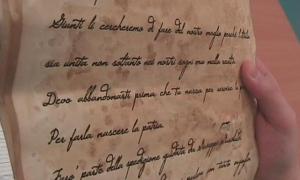 Giunti lì cercheremo di fare del nostro meglio perché l'Italia
sia unita non soltanto nei nostri sogni ma nella realtà.
Devo abbandonarti prima che tu nasca per servire la
Per farla nascere la patria.
Farò parte della spedizione guidata da